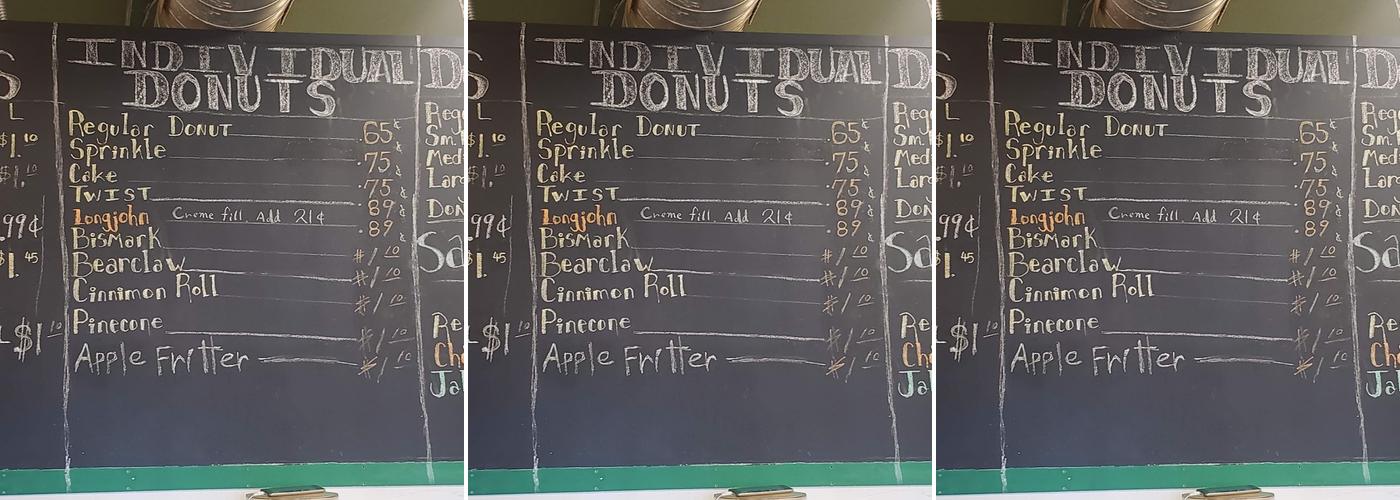 INDIVIDUAL
DONUTS
Regular DONUT 65¢
Sprinkle .75¢
Cake .75¢
TWIST 89¢
Longjohn Creme fill Add 21¢ .89¢
BisMark $1.10
Bearclaw $1.10
Cinnimon Roll $1.10
Pinecone $1.10
Apple Fritter $1.10
$1.10
$1.10
.99¢
$1.45
$1.10
INDIVIDUAL
DONUTS
Regular DONUT 65¢
Sprinkle .75¢
Cake .75¢
TWIST 89¢
Longjohn Creme fill Add 21¢ .89¢
BisMark $1.10
Bearclaw $1.10
Cinnimon Roll $1.10
Pinecone $1.10
Apple Fritter $1.10
INDIVIDUAL
DONUTS
Regular DONUT 65¢
Sprinkle .75¢
Cake .75¢
TWIST 89¢
Longjohn Creme fill Add 21¢ .89¢
BisMark $1.10
Bearclaw $1.10
Cinnimon Roll $1.10
Pinecone $1.10
Apple Fritter $1.10